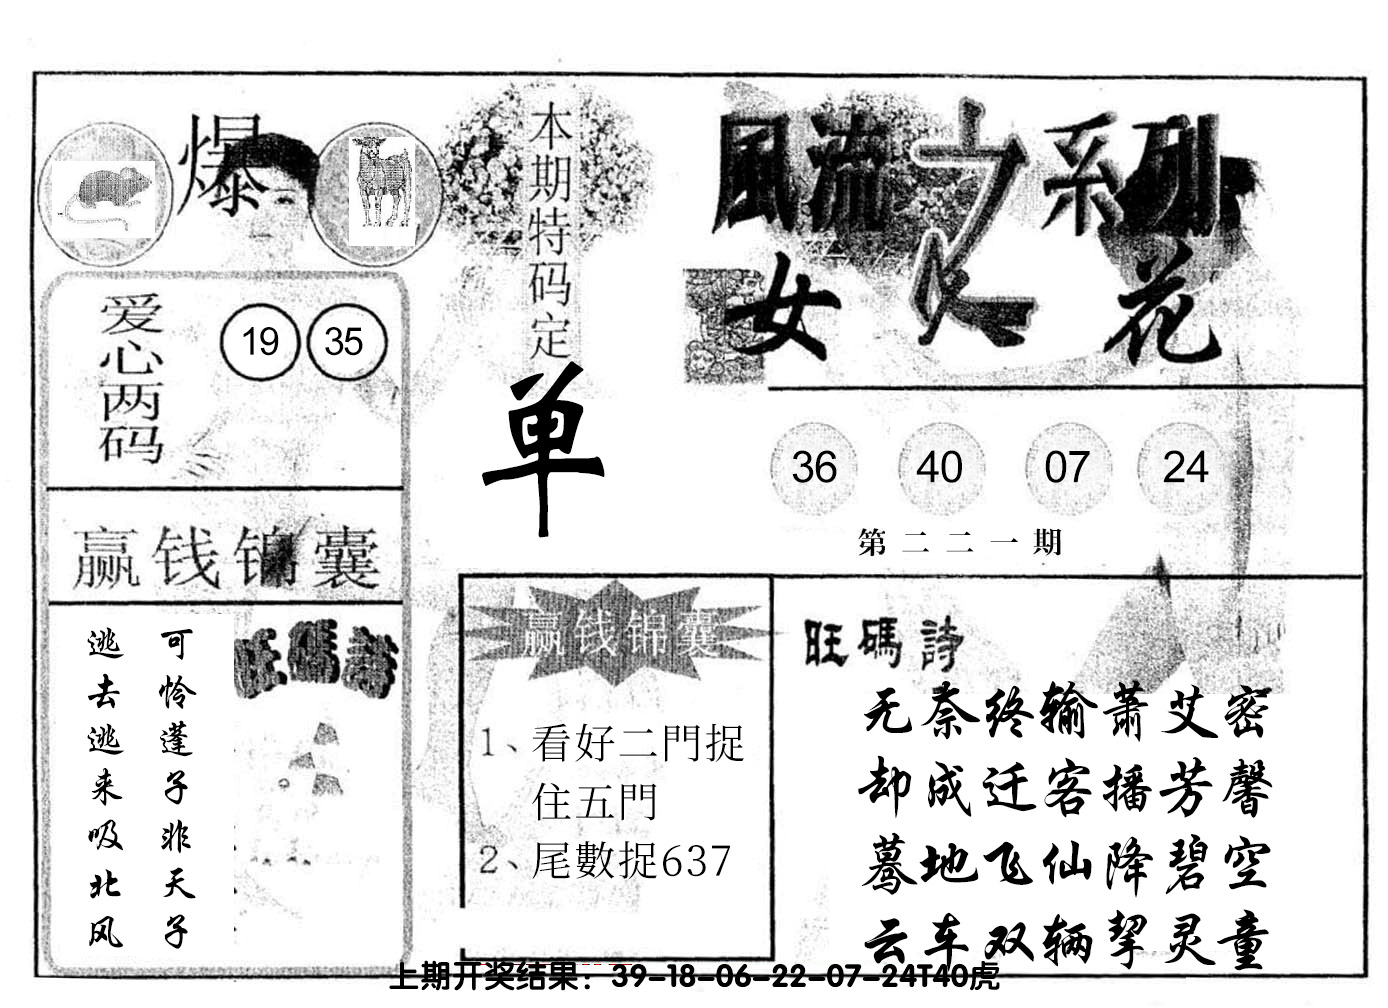 爆
本期特码定
单
風流之系列
女人花
爱心两码
19 35
36 40 07 24
第二二一期
赢钱锦囊
旺碼詩
可怜蓬子非天子
逃去逃来吸北风
赢钱锦囊
1、看好二門捉
住五門
2、尾數捉637
旺碼詩
无奈终输萧艾密
却成迁客播芳馨
蓦地飞仙降碧空
云车双辆挈灵童
上期开奖结果：39-18-06-22-07-24T40虎